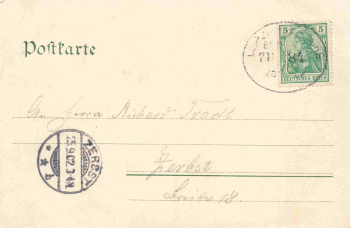 Postkarte
5 5
DEUTSCHES REICH
An Herrn Richard Tradt
Zerbst
Breite 18.
ZERBST
5.9.02.3-4N.